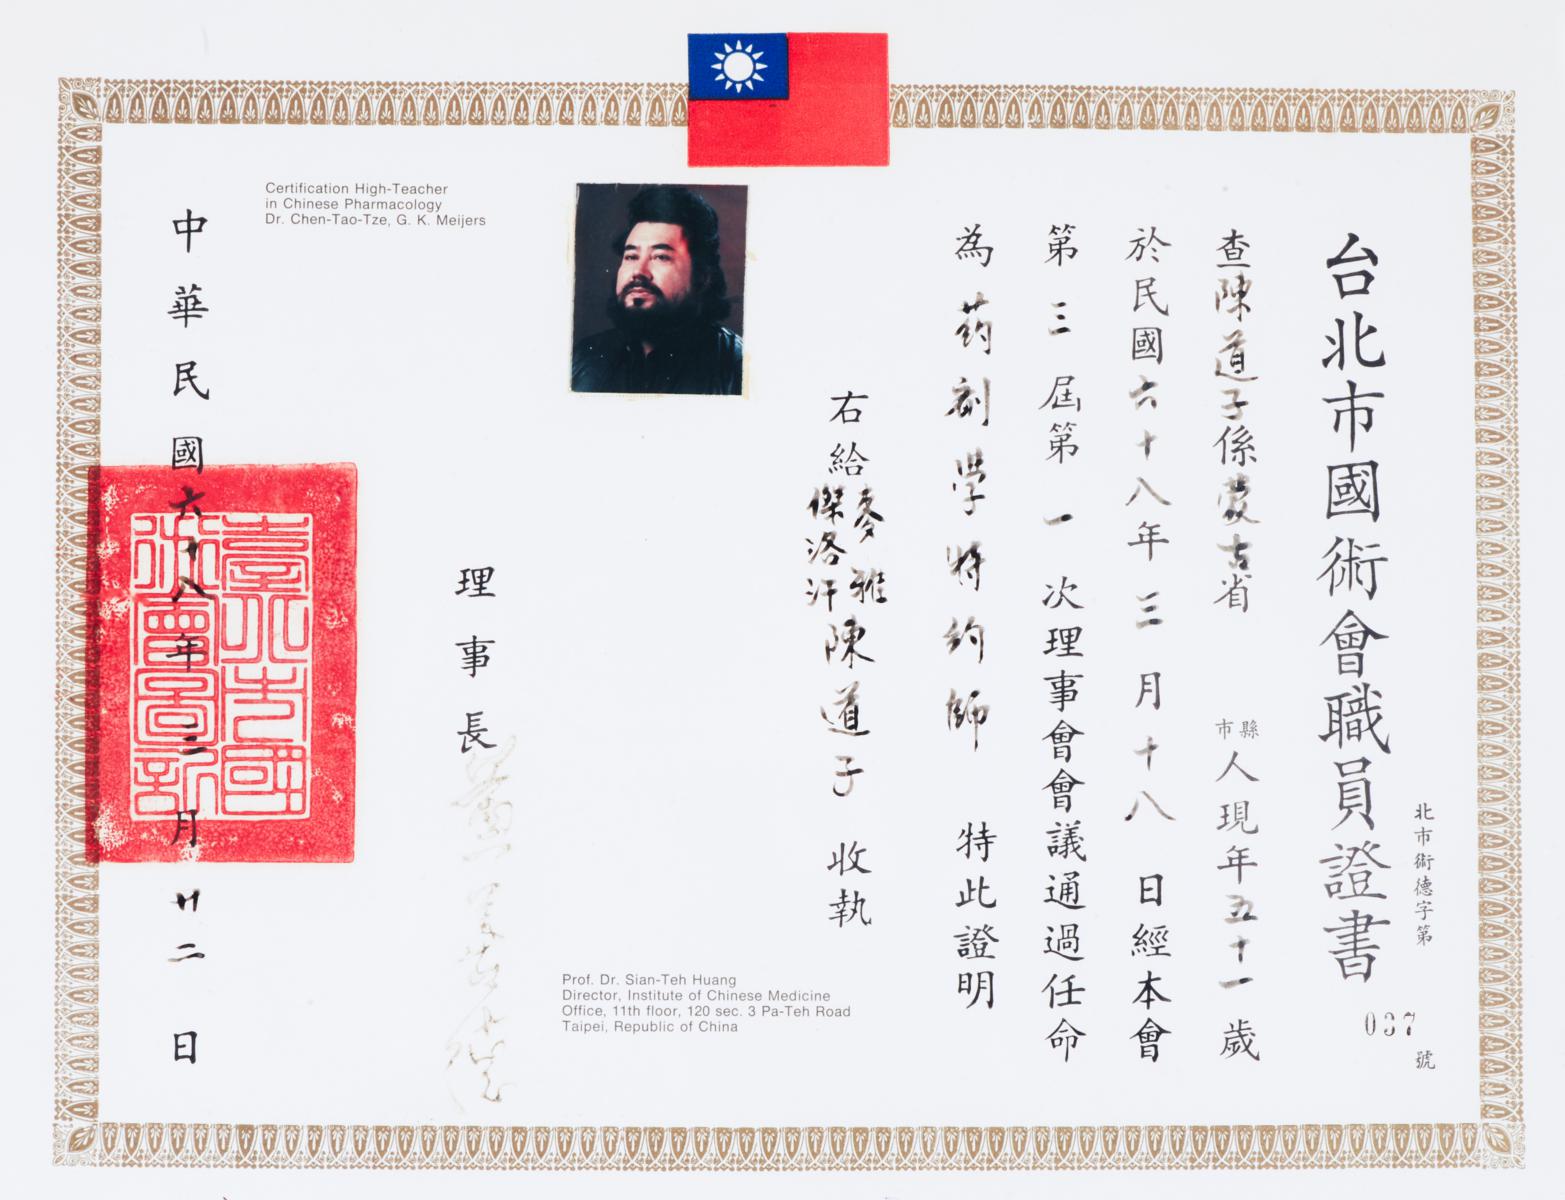 台北市國術會職員證書
北市術德字第
037
號
查陳道子係蒙古省
縣
市
人現年五十一歲
於民國六十八年三月十八日經本會
第三屆第一次理事會會議通過任命
為药剂学特約師 特此證明
右給
麥雅
傑洛汗
陳道子 收執
理事長
中華民國六十八年三月廿二日
Certification High-Teacher
in Chinese Pharmacology
Dr. Chen-Tao-Tze, G. K. Meijers
Prof. Dr. Sian-Teh Huang
Director, Institute of Chinese Medicine
Office, 11th floor, 120 sec. 3 Pa-Teh Road
Taipei, Republic of China